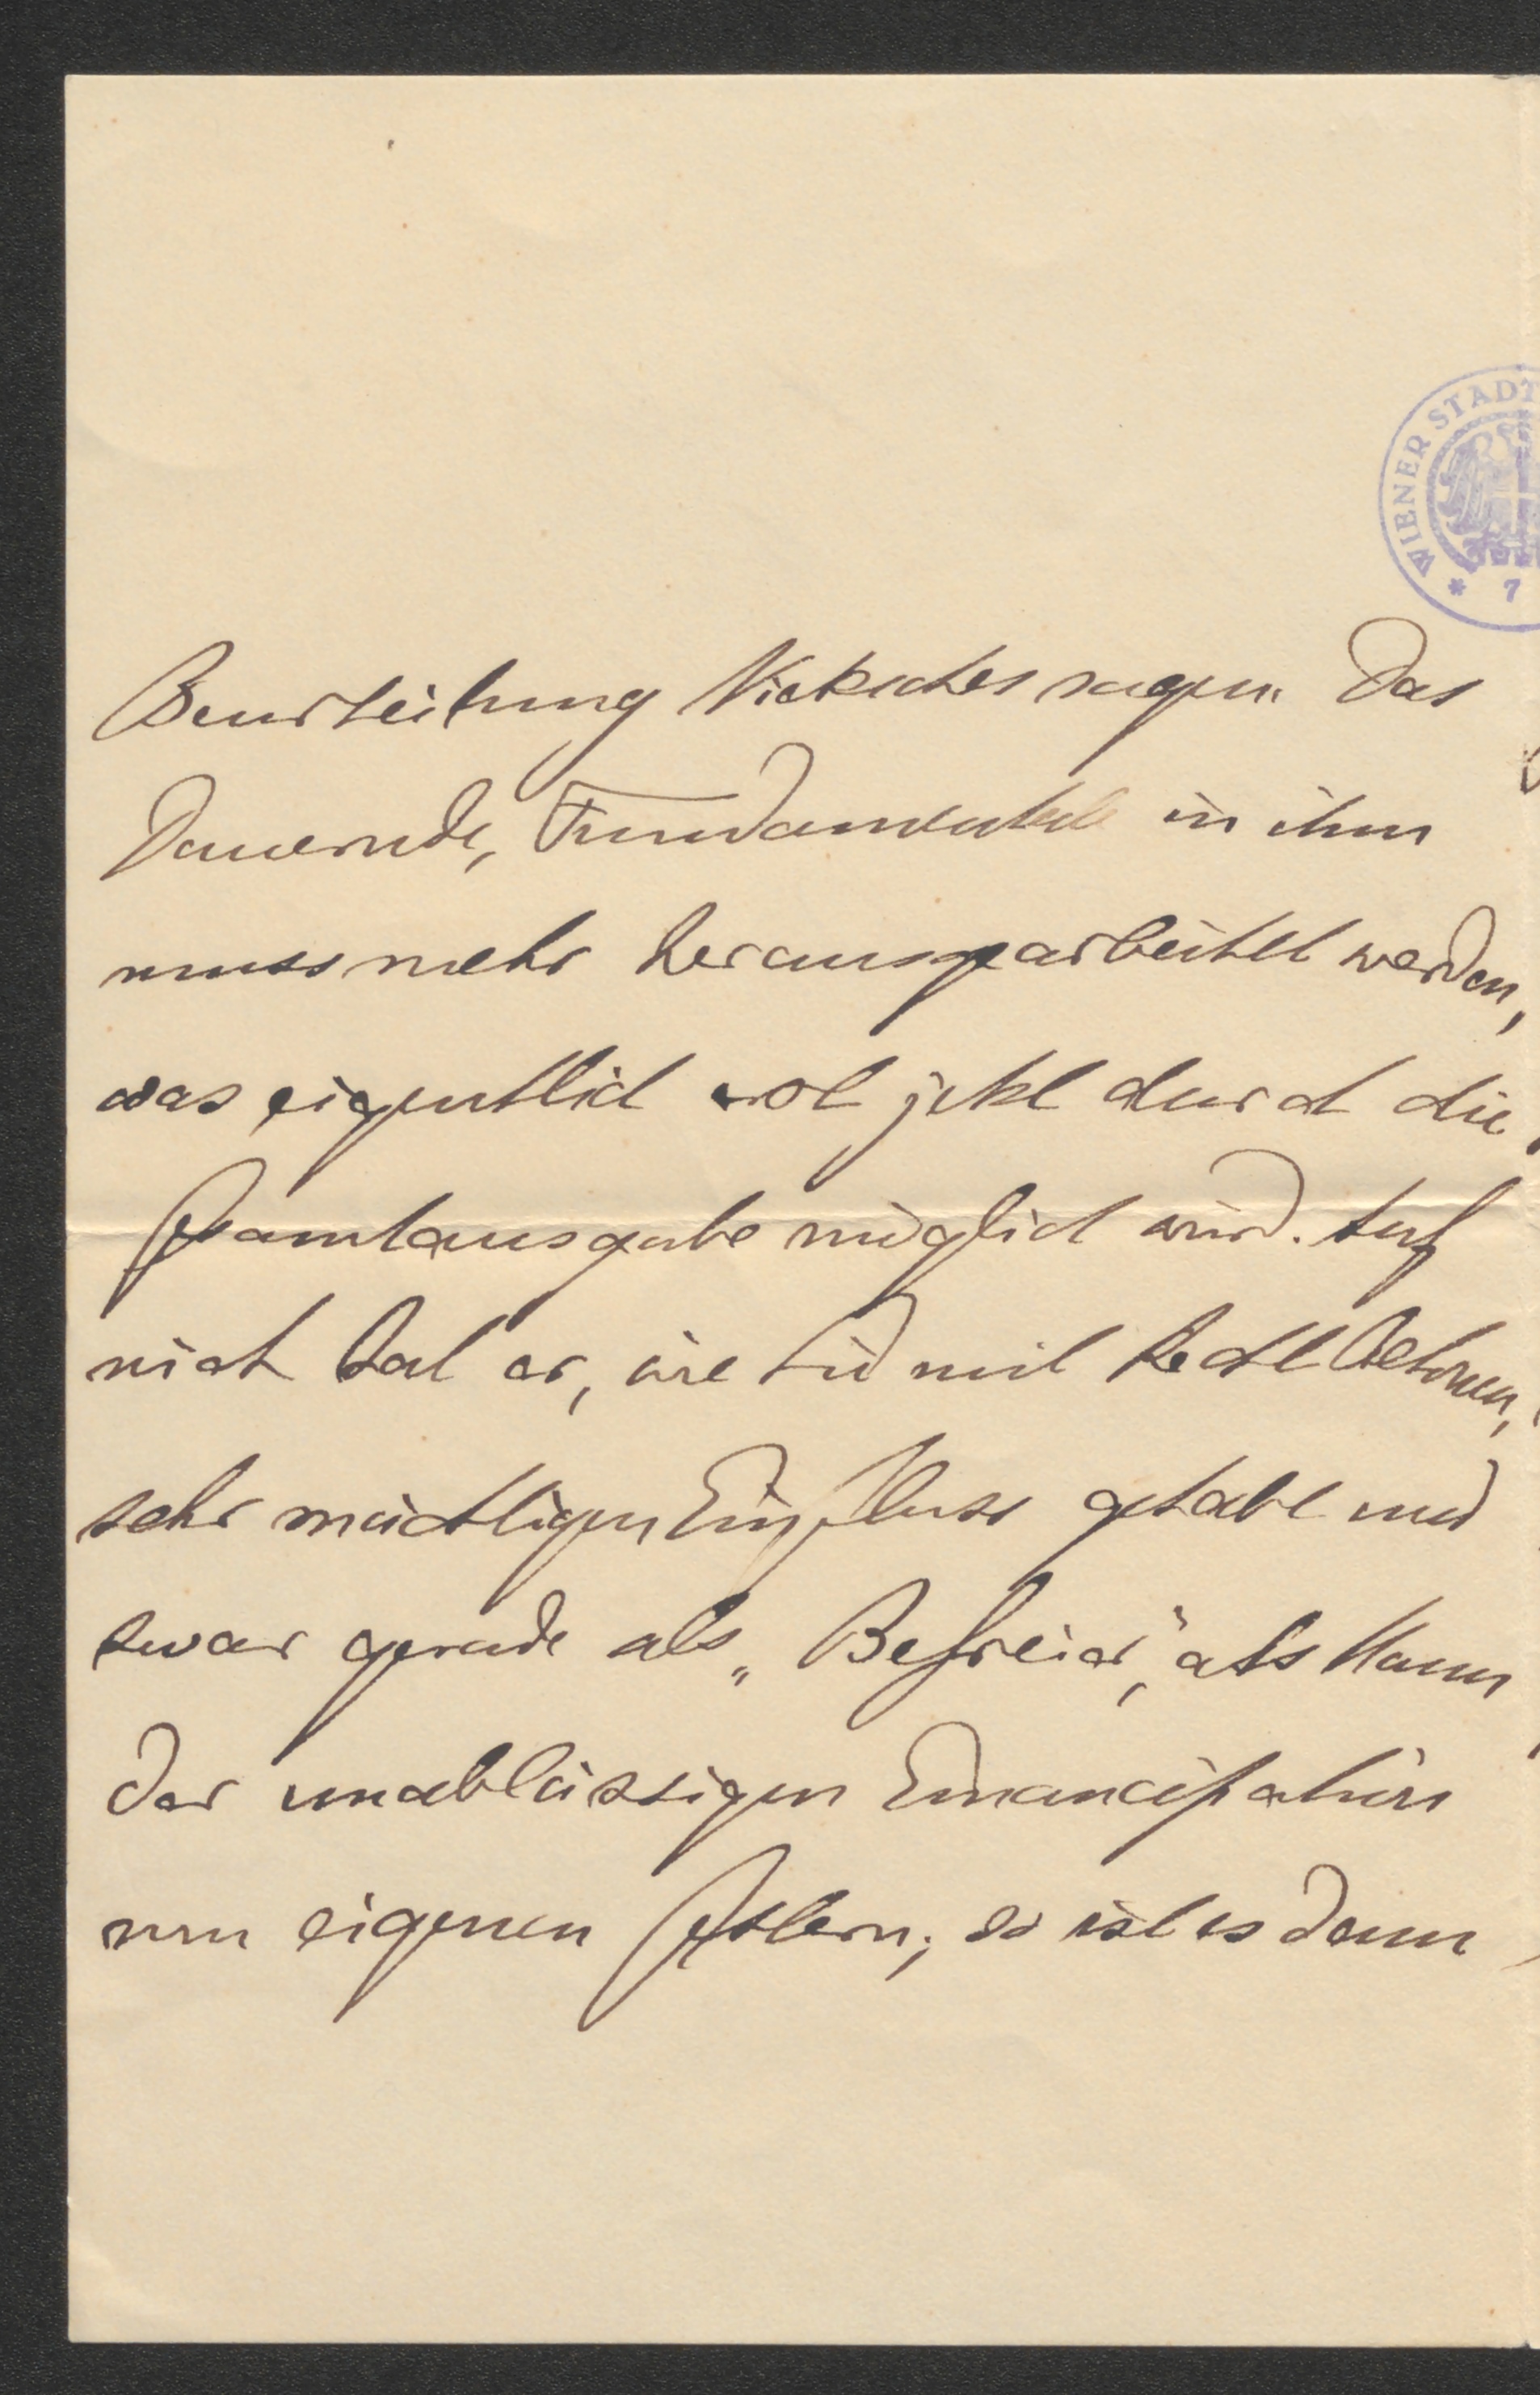 WIENER STADT
* 7
Beurteilung Nietzsches sagen. Das
Dauernde, Fundamentale in ihm
muss mehr herausgearbeitet werden,
was eigentlich wol jetzt durch die
Gesamtausgabe möglich wird. Auf
mich hat er, wie Sie mit Recht betonen,
sehr mächtigen Einfluss gehabt und
zwar gerade als „Befreier“, als Mann
der unablässigen Emancipation
vom eigenen Gestern; so ist es denn